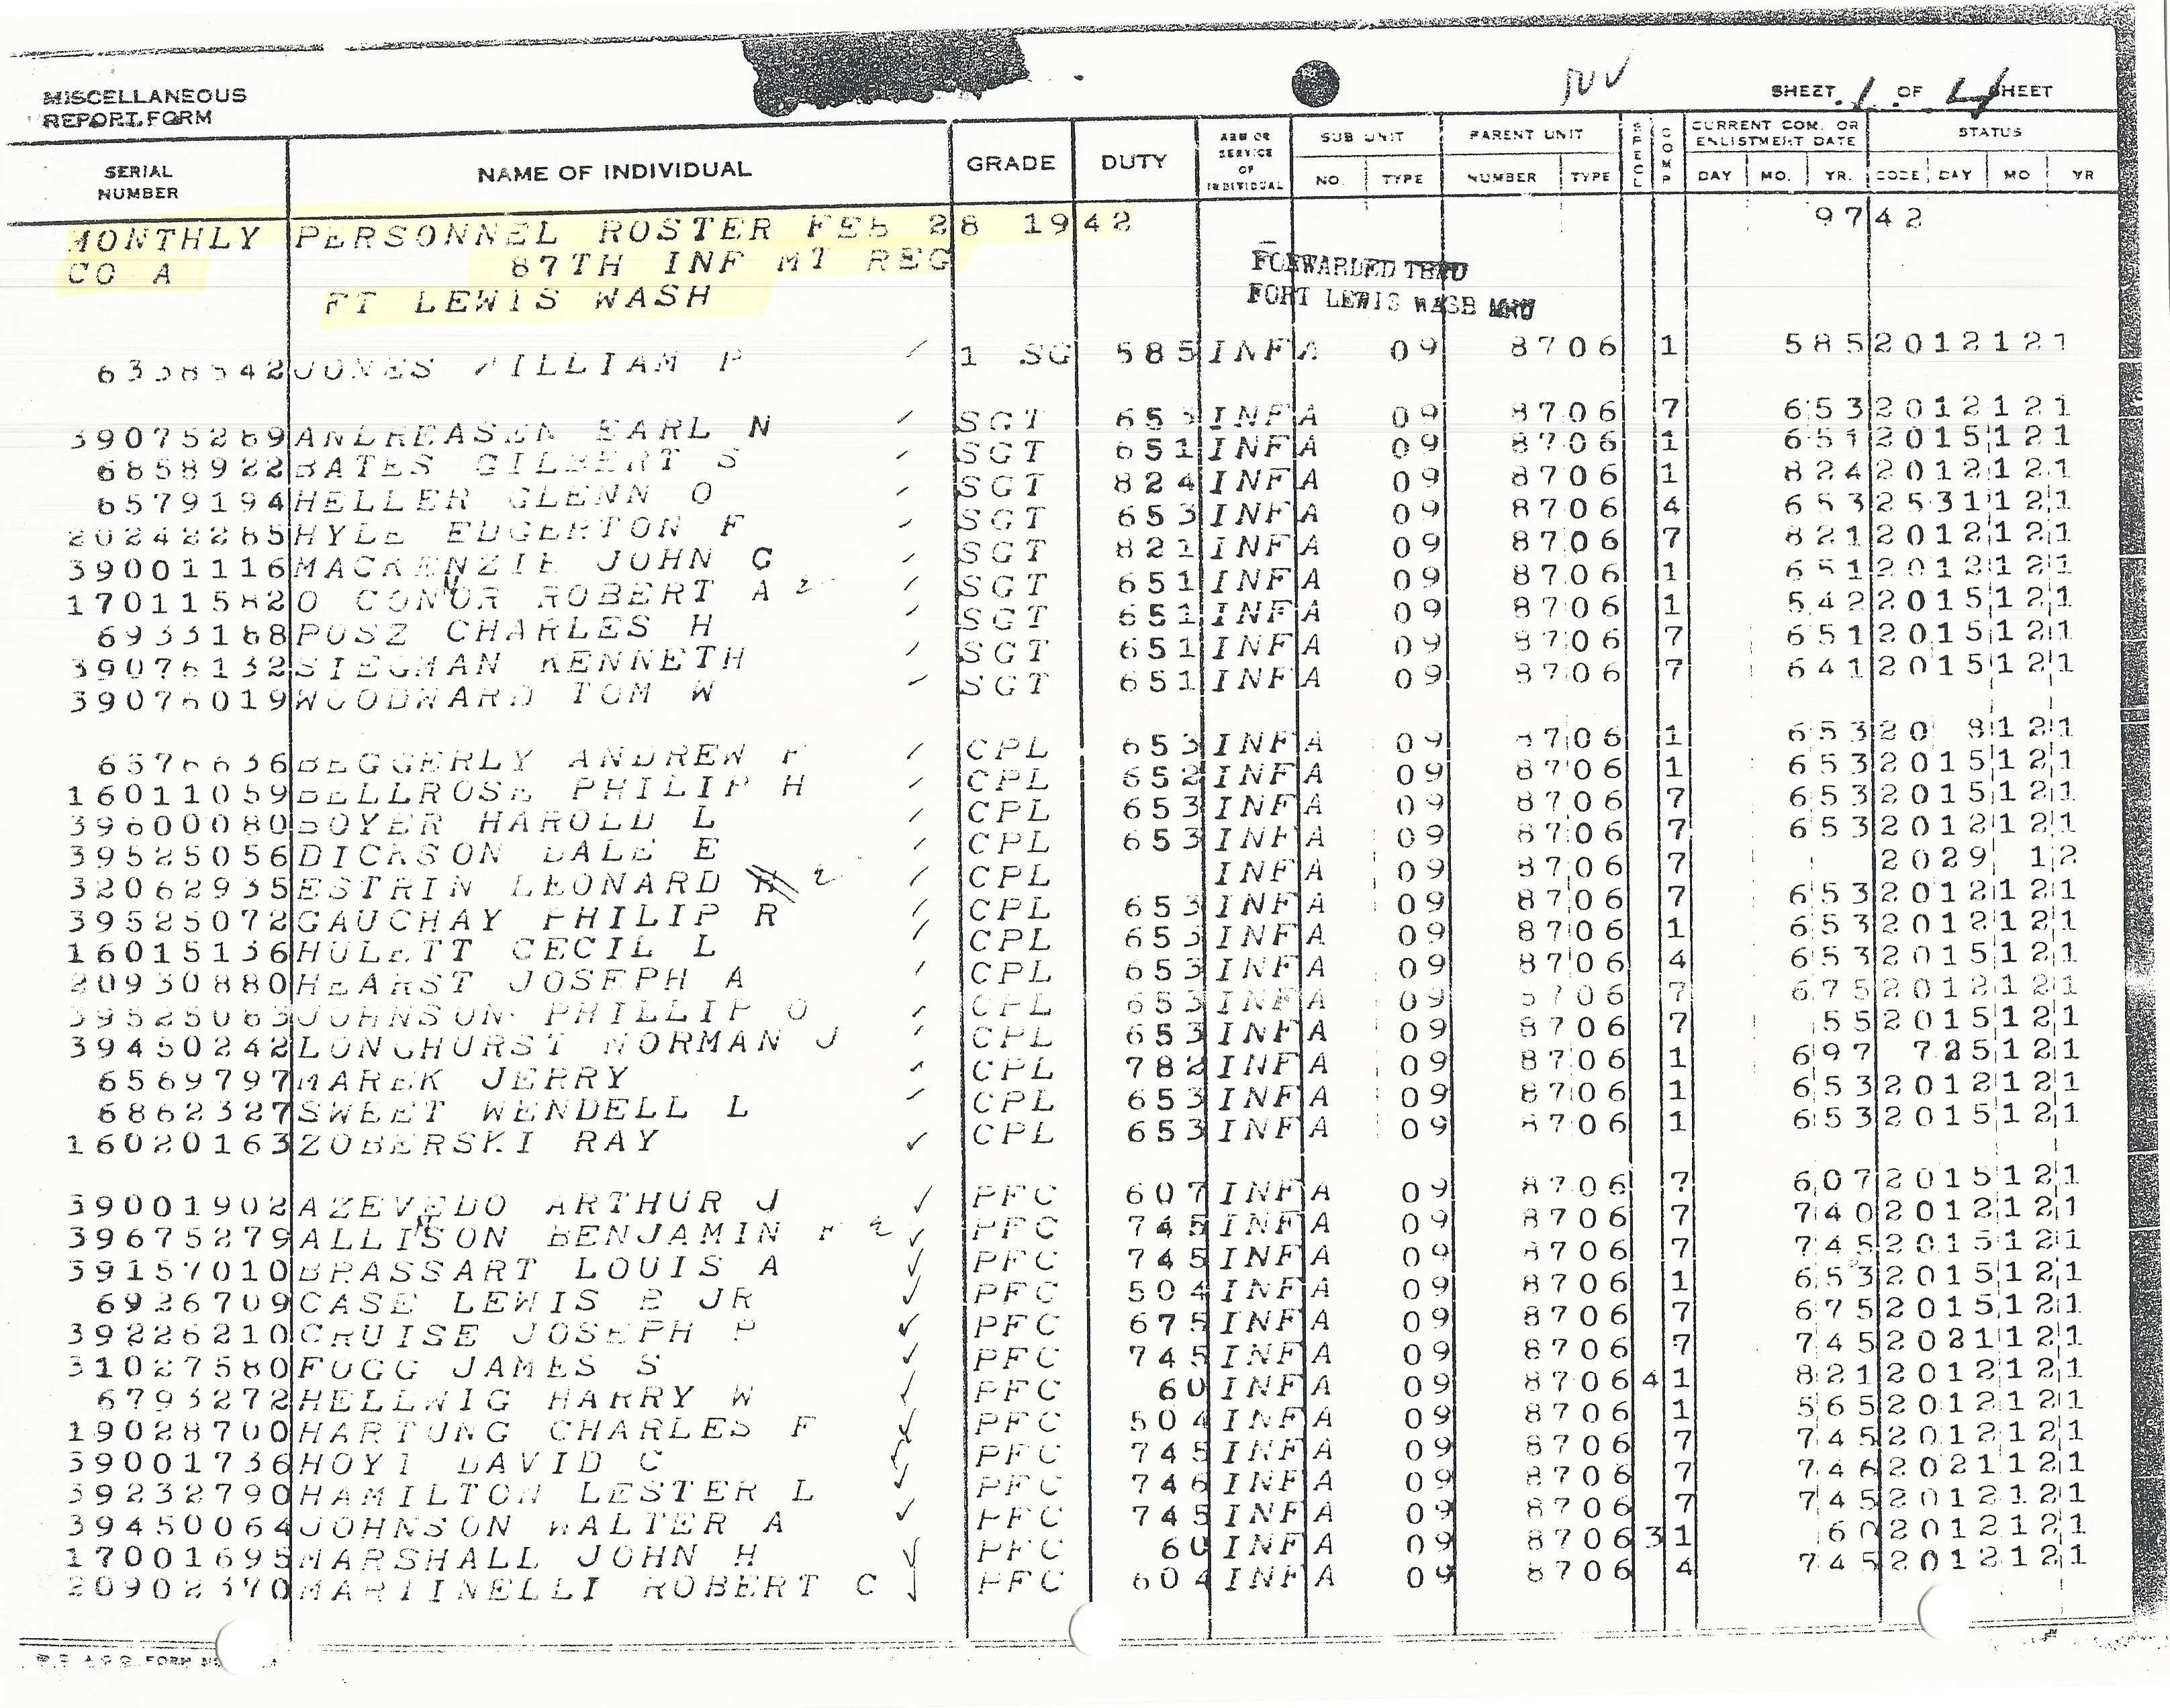 MISCELLANEOUS
REPORT FORM
SHEET 1 OF 4 SHEET
SERIAL NUMBER NAME OF INDIVIDUAL GRADE DUTY ARM OR SERVICE OF INDIVIDUAL SUB UNIT NO. TYPE PARENT UNIT NUMBER TYPE SPECL COMP CURRENT COM. OR ENLISTMENT DATE DAY MO. YR. STATUS CODE DAY MO YR
MONTHLY PERSONNEL ROSTER FEB 28 1942 9742
CO A 87TH INF MT REG
FT LEWIS WASH
FORWARDED THRU
FORT LEWIS WASH MRU
JONES WILLIAM P 1 SG 585 INF A 09 8706 1 5852012121
39075289 ANDREASEN EARL N SGT 653 INF A 09 8706 7 6532012121
6858922 BATES GILBERT S SGT 651 INF A 09 8706 1 6512015121
6579194 HELLER GLENN O SGT 824 INF A 09 8706 1 8242012121
20242285 HYLE EDGERTON F SGT 653 INF A 09 8706 4 6532531121
39001116 MACKENZIE JOHN G SGT 821 INF A 09 8706 7 8212012121
17011582 O CONOR ROBERT A SGT 651 INF A 09 8706 1 6512012121
6933188 POSZ CHARLES H SGT 651 INF A 09 8706 1 5422015121
39076132 SIEGMAN KENNETH SGT 651 INF A 09 8706 7 6512015121
39076019 WOODWARD TOM W SGT 651 INF A 09 8706 7 6412015121
6576636 BEGGERLY ANDREW F CPL 653 INF A 09 8706 1 65320 8121
16011059 BELLROSE PHILIP H CPL 652 INF A 09 8706 1 6532015121
39600080 BOYER HAROLD L CPL 653 INF A 09 8706 7 6532015121
39525056 DICKSON DALE E CPL 653 INF A 09 8706 7 6532012121
32062935 ESTRIN LEONARD CPL INF A 09 8706 7 2029 12
39525072 GAUCHAY PHILIP R CPL 653 INF A 09 8706 7 6532012121
16015136 HULETT CECIL L CPL 653 INF A 09 8706 1 6532012121
20930880 HEARST JOSEPH A CPL 653 INF A 09 8706 4 6532015121
39525063 JOHNSON PHILLIP O CPL 653 INF A 09 8706 7 6752012121
39450242 LONGHURST NORMAN J CPL 653 INF A 09 8706 7 552015121
6569797 MAREK JERRY CPL 782 INF A 09 8706 1 697 725121
6862327 SWEET WENDELL L CPL 653 INF A 09 8706 1 6532012121
16020163 ZOBERSKI RAY CPL 653 INF A 09 8706 1 6532015121
39001902 AZEVEDO ARTHUR J PFC 607 INF A 09 8706 7 6072015121
39675279 ALLISON BENJAMIN F PFC 745 INF A 09 8706 7 7402012121
39157010 BRASSART LOUIS A PFC 745 INF A 09 8706 7 7452015121
6926709 CASE LEWIS E JR PFC 504 INF A 09 8706 1 6532015121
39226210 CRUISE JOSEPH P PFC 675 INF A 09 8706 7 6752015121
31027580 FOGG JAMES S PFC 745 INF A 09 8706 7 7452021121
6793272 HELLWIG HARRY W PFC 60 INF A 09 8706 4 1 8212012121
19028700 HARTUNG CHARLES F PFC 504 INF A 09 8706 1 5652012121
39001736 HOYT DAVID C PFC 745 INF A 09 8706 7 7452012121
39232790 HAMILTON LESTER L PFC 746 INF A 09 8706 7 7462021121
39450064 JOHNSON WALTER A PFC 745 INF A 09 8706 7 7452012121
17001695 MARSHALL JOHN H PFC 60 INF A 09 8706 3 1 602012121
20902370 MARTINELLI ROBERT C PFC 604 INF A 09 8706 4 7452012121